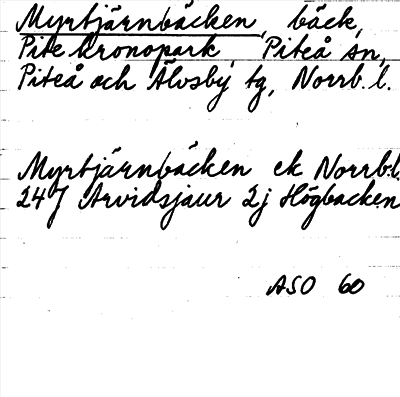 Myrtjärnbäcken, bäck,
Pite kronopark, Piteå sn,
Piteå och Älvsby tg, Norrb. l.
Myrtjärnbäcken ek Norrb.l.
24 J Arvidsjaur 2j Högbacken
ASO 60